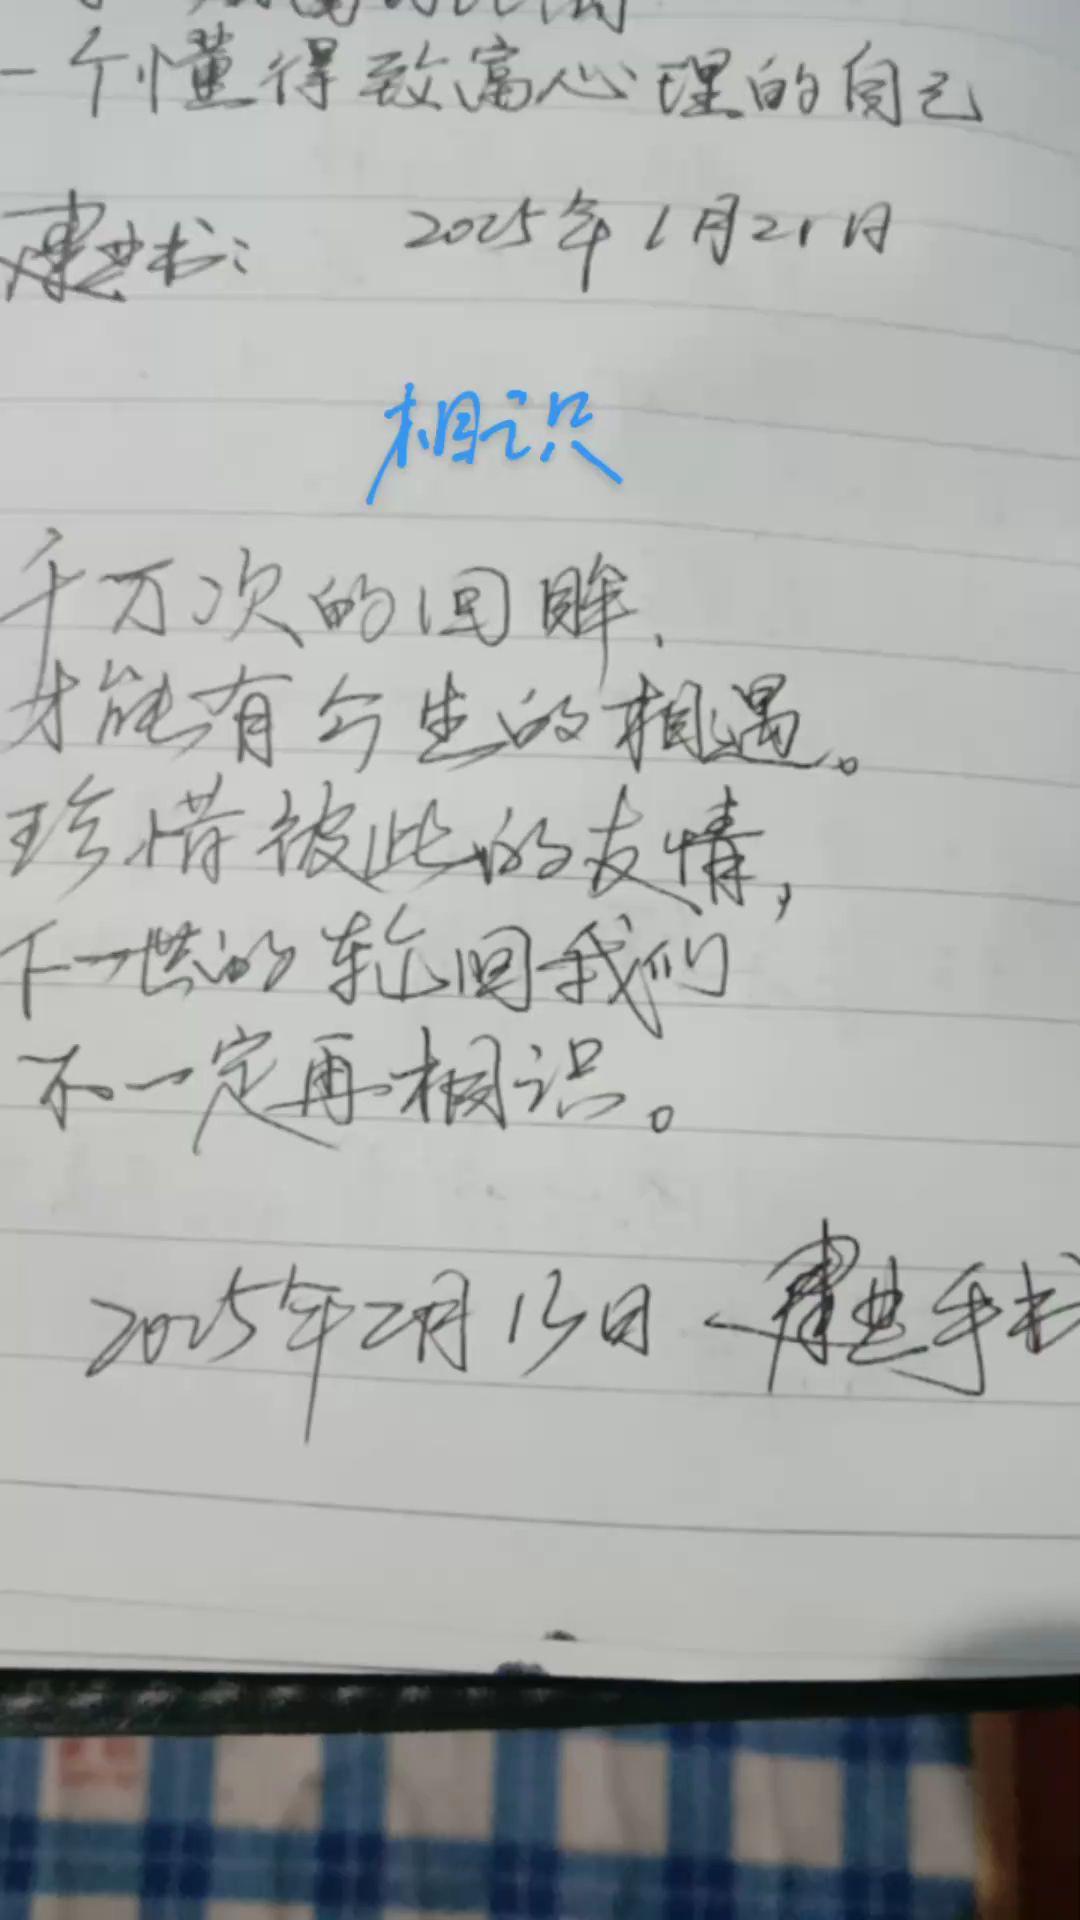 一个懂得致富心理的自己
建典书: 2025年1月21日
相识
千万次的回眸,
才能有今生的相遇。
珍惜彼此的友情,
下一世的轮回我们
不一定再相识。
2025年2月13日 建典手书